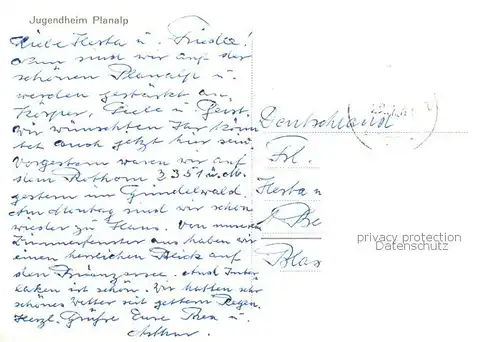 Jugendheim Planalp
Liebe Herta u. Frieda!
Nun sind wir auf der
schönen Planalp u.
werden gestärkt an
Körper, Seele u Geist.
Wir wünschten Ihr könn
tet auch jetzt hier sein.
Vorgestern waren wir auf
dem Rothorn 2351 ü.M.
gestern im Grindelwald.
Am Montag sind wir schon
wieder zu Haus. Von unserem
Zimmerfenster aus haben wir
einen herrlichen Blick auf
den Brienzersee. Auch Inter
laken ist schön. Wir hatten sehr
schönes Wetter seit gestern Regen.
Herzl. Grüße Eure Thea u.
Arthur.
Deutschland
Frl.
Herta u
Be
Blas
privacy protection
Datenschutz